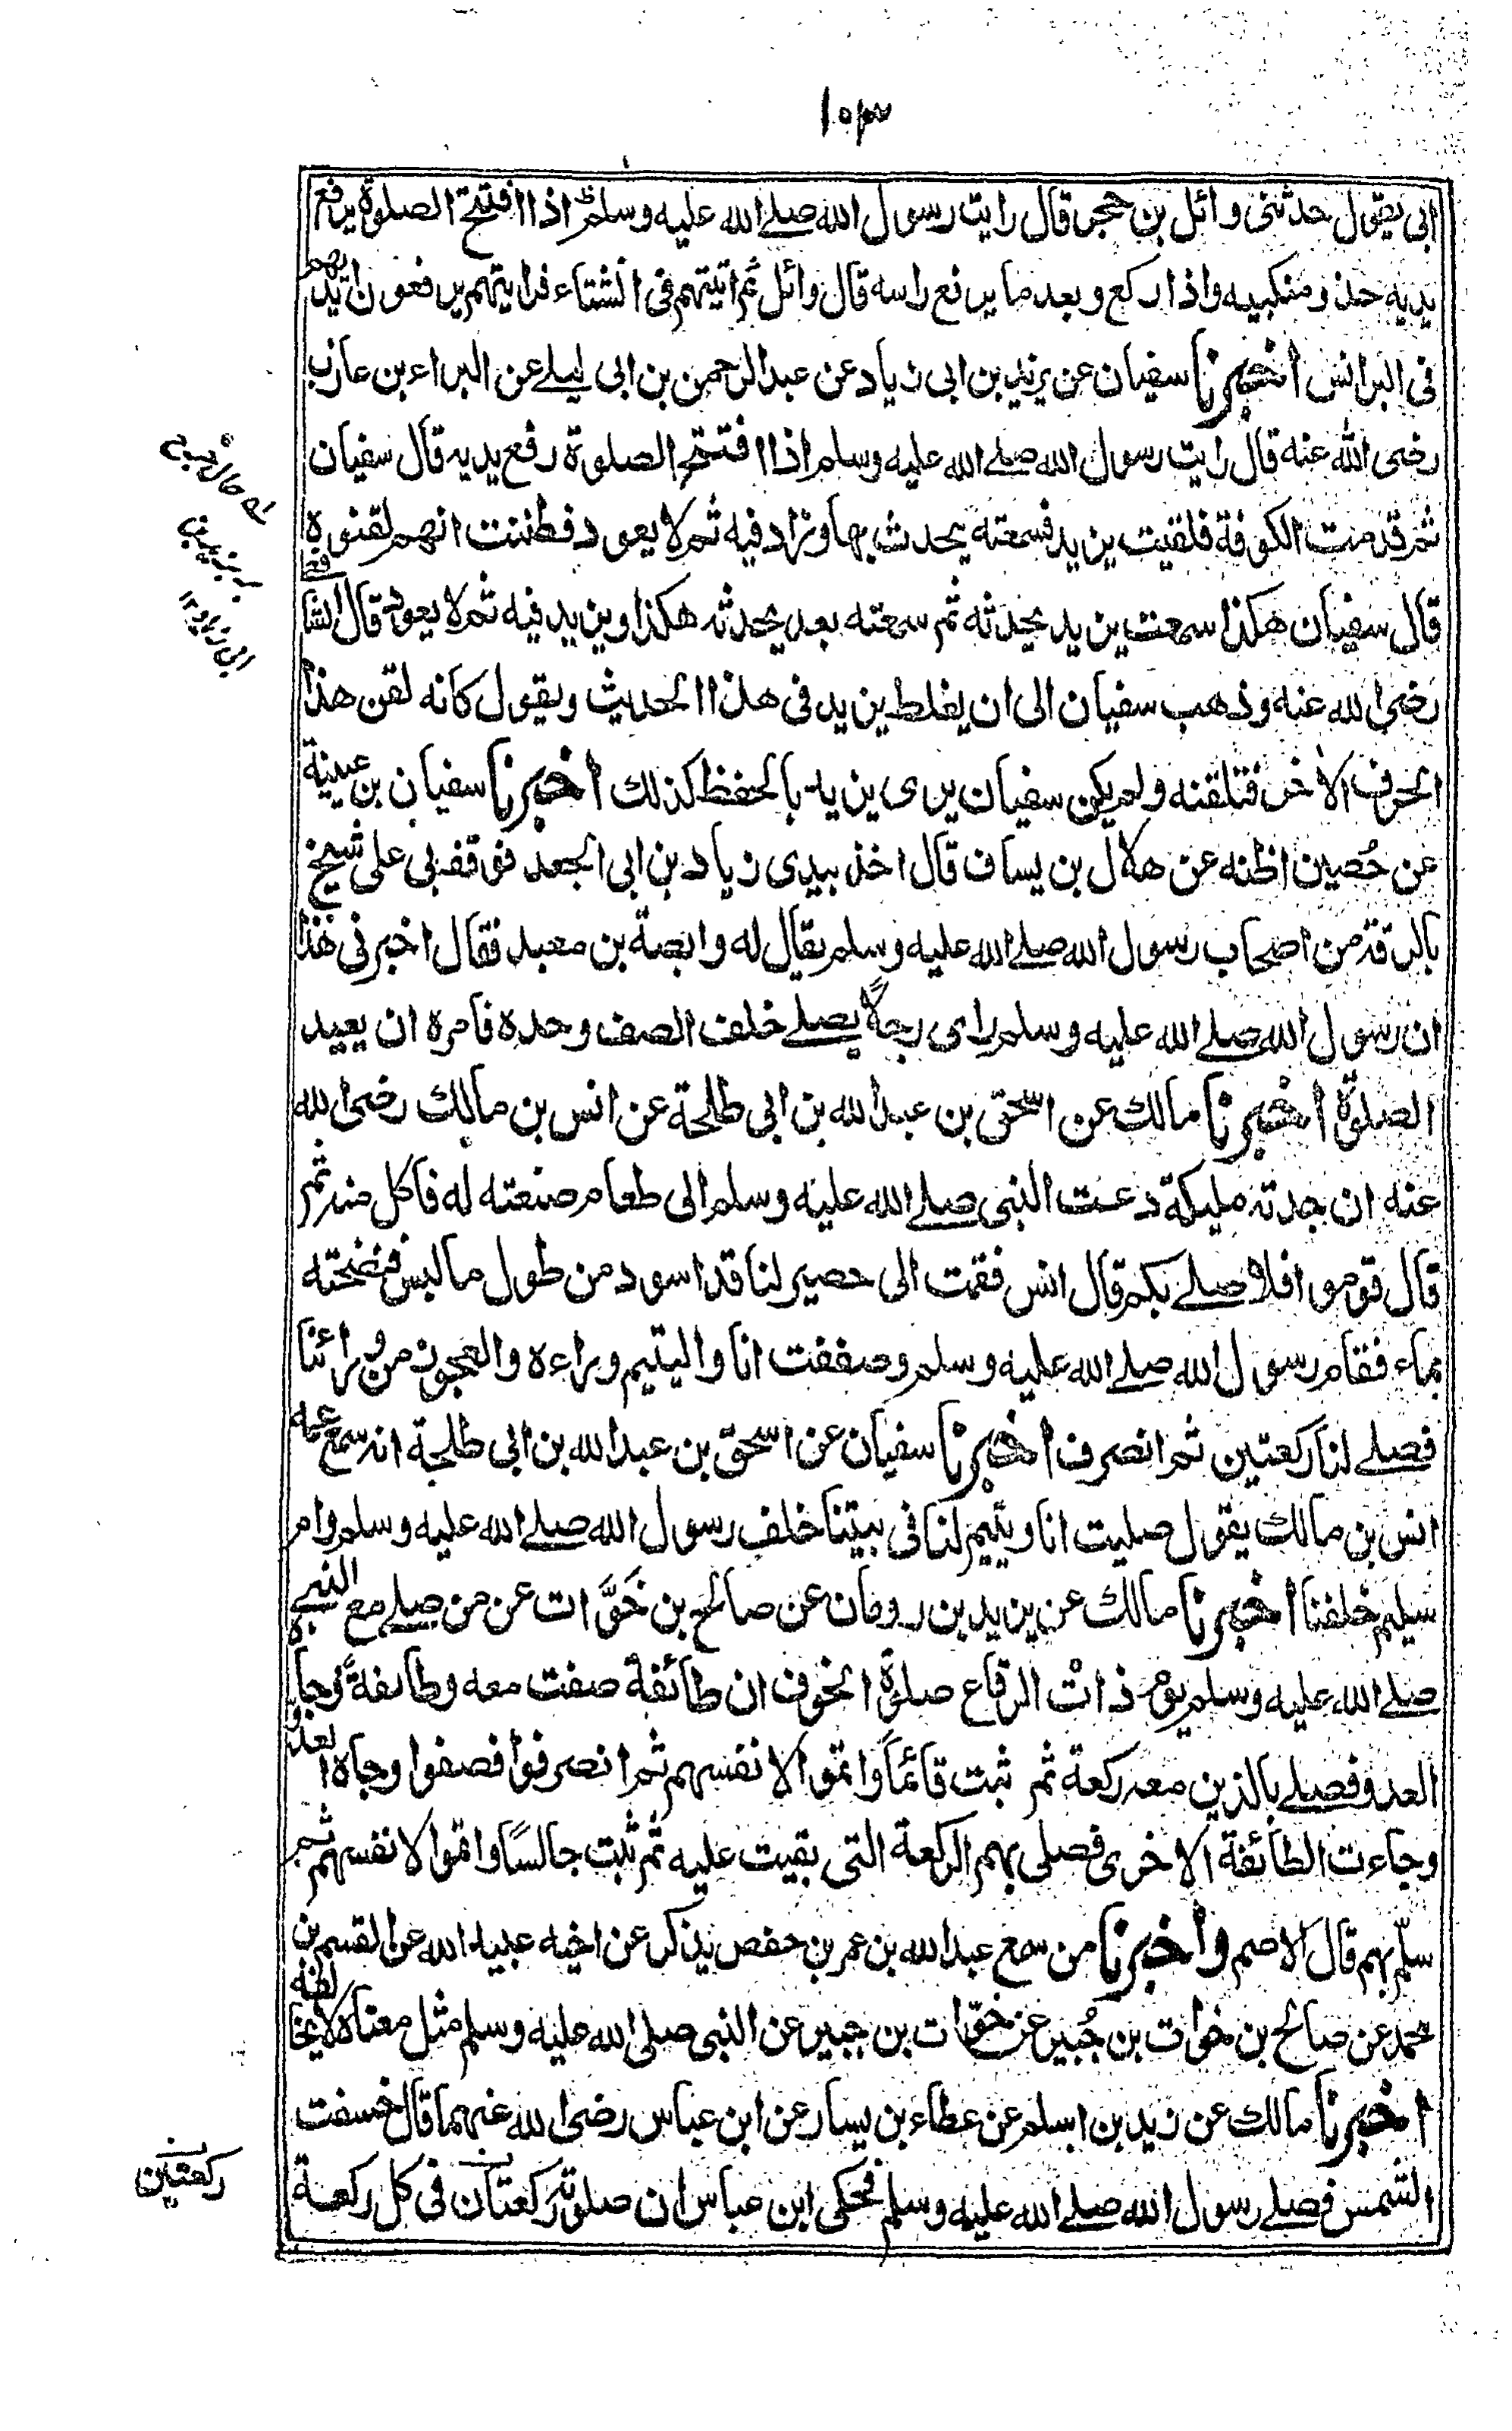 ١٥٣
ابى يقول حدثنى وائل بن حجر قال رايت رسول الله صلے الله عليه وسلم اذا افتتح الصلوة يرفع
يديه حذو منكبيه واذا ركع وبعد ما يرفع راسه قال وائل ثم اتيتهم فى الشتاء فرايتهم يرفعون ايديهم
فى البرانس اخبرنا سفيان عن يزيد بن ابى زياد عن عبد الرحمن بن ابى ليلے عن البراء بن عازب
رضى الله عنه قال رايت رسول الله صلے الله عليه وسلم اذا افتتح الصلوة رفع يديه قال سفيان
ثم قدمت الكوفة فلقيت يزيد فسمعته يحدث بها وزاد فيه ثم لا يعود فظننت انهم لقنوه
قال سفيان هكذا سمعت يزيد يحدثه ثم سمعته بعد يحدثه هكذا ويزيد فيه ثم لا يعود قال الشافعى
رضى الله عنه وذهب سفيان الى ان يغلط يزيد فى هذا الحديث ويقول كانه لقن هذا
الحرف الاخر فتلقنه ولم يكن سفيان يرى يزيد بالحفظ كذلك اخبرنا سفيان بن عيينة
عن حُصين اظنه عن هلال بن يساف قال اخذ بيدى زياد بن ابى الجعد فوقف بى على شيخ
بالرقة من اصحاب رسول الله صلے الله عليه وسلم يقال له وابصة بن معبد فقال اخبرنى هذا
ان رسول الله صلے الله عليه وسلم راى رجلًا يصلے خلف الصف وحده فامره ان يعيد
الصلوة اخبرنا مالك عن اسحق بن عبد الله بن ابى طلحة عن انس بن مالك رضى الله
عنه ان جدته مليكة دعت النبى صلے الله عليه وسلم الى طعام صنعته له فاكل منه ثم
قال قوموا فلا صلے بكم قال انس فقمت الى حصير لنا قد اسود من طول ما لبس فنضحته
بماء فقام رسول الله صلے الله عليه وسلم وصففت انا واليتيم وراءه والعجوز من ورائنا
فصلے لنا ركعتين ثم انصرف اخبرنا سفيان عن اسحق بن عبد الله بن ابى طلحة انه سمع عمه
انس بن مالك يقول صليت انا ويتيم لنا فى بيتنا خلف رسول الله صلے الله عليه وسلم وام
سليم خلفنا اخبرنا مالك عن يزيد بن رومان عن صالح بن خَوَّات عن من صلے مع النبے
صلے الله عليه وسلم يوم ذات الرقاع صلوة الخوف ان طائفة صفت معه وطائفةً وجاه
العدو فصلے بالذين معه ركعة ثم ثبت قائماً واتموا لانفسهم ثم انصرفوا فصفوا وجاه العدو
وجاءت الطائفة الاخرى فصلى بهم الركعة التى بقيت عليه ثم ثبت جالسًا واتموا لانفسهم ثم
سلم بهم قال الاصم واخبرنا من سمع عبد الله بن عمر بن حفص يذكر عن اخيه عبيد الله عن القسم بن
محمد عن صالح بن خوات بن جُبير عن خوّات بن جبير عن النبى صلى الله عليه وسلم مثل معناه لا يخالفه
اخبرنا مالك عن زيد بن اسلم عن عطاء بن يسار عن ابن عباس رضى الله عنهما قال خسفت
الشمس فصلے رسول الله صلے الله عليه وسلم فحكى ابن عباس ان صلوته ركعتان فى كل ركعة
ركعتين